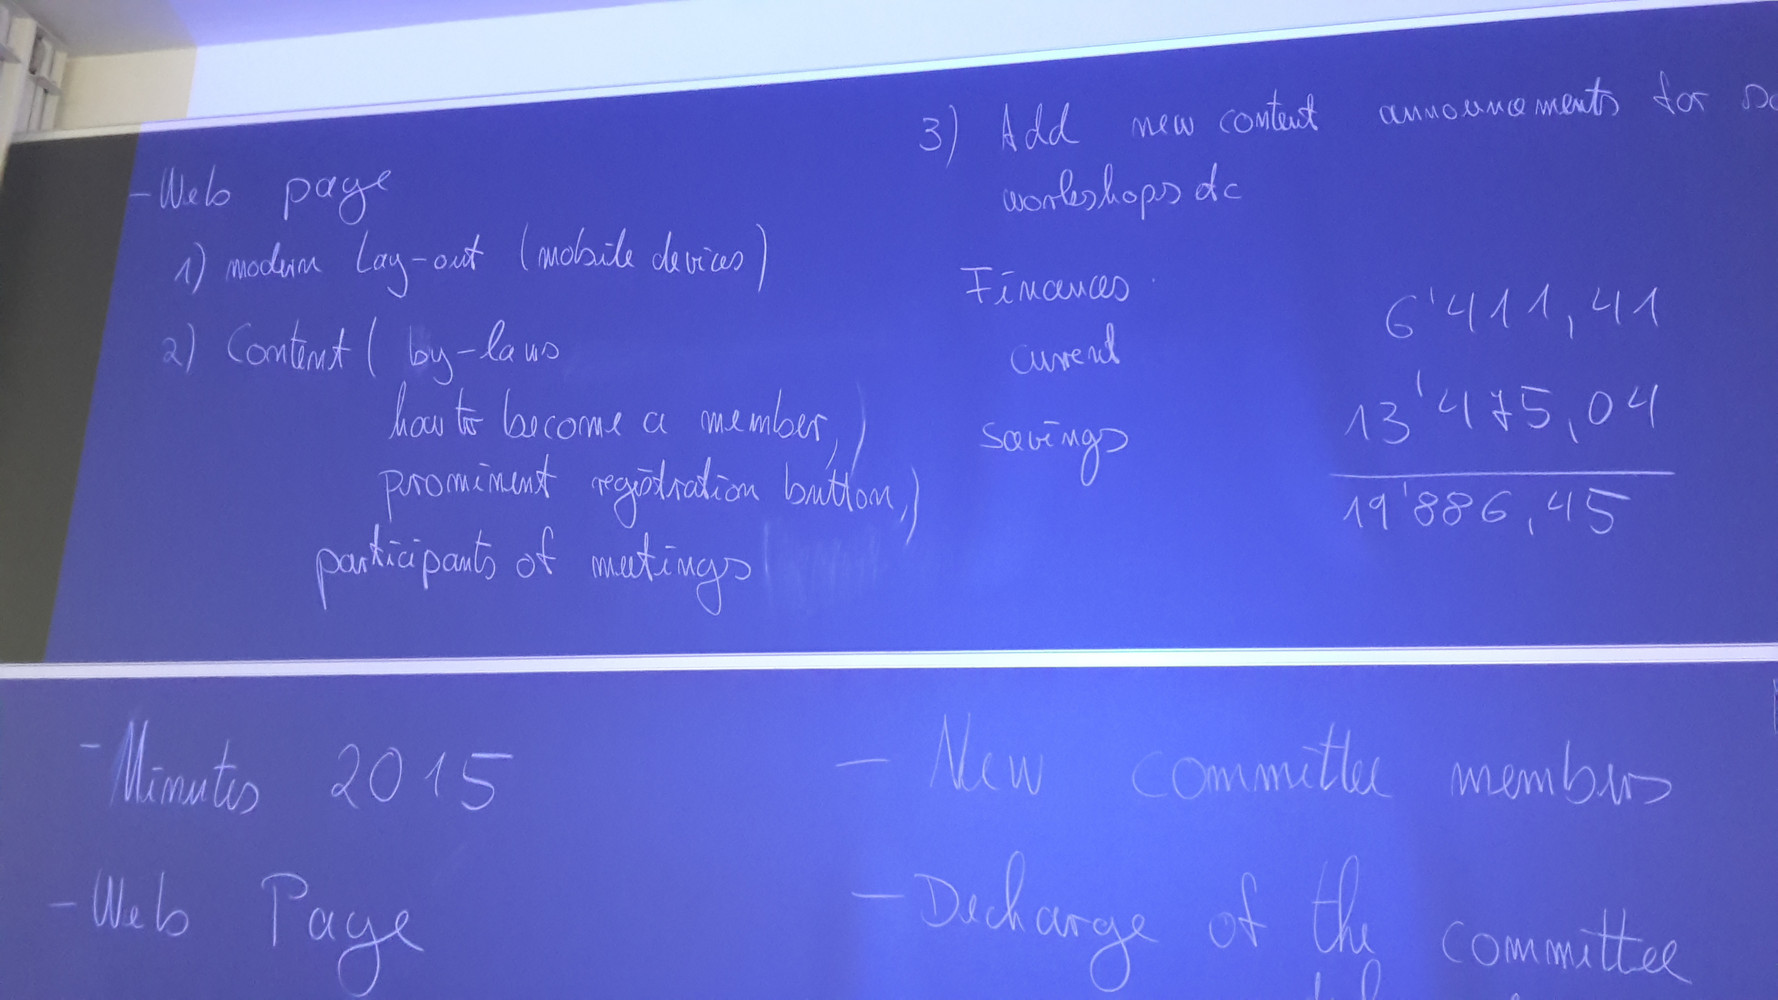 - Web page
1) modern Lay-out (mobile devices)
2) Content ( by-laws
how to become a member,)
prominent registration button,)
participants of meetings
3) Add new content announcements for
workshops etc
Finances
current 6'411,41
savings 13'475,04
19'886,45
- Minutes 2015
- Web Page
- New committee members
- Decharge of the committee